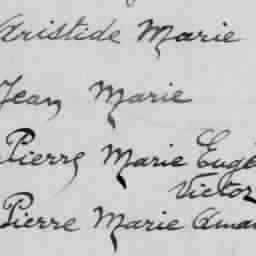 Aristide Marie
Jean Marie
Pierre Marie Eugè
Victor
Pierre Marie Aman